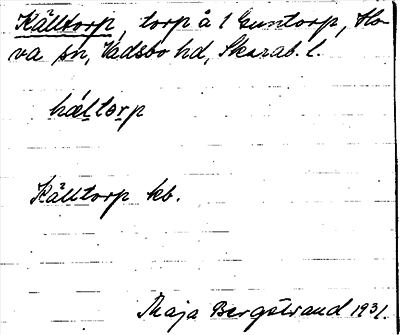 Källtorp torp å 1 Guntorp, Ho-
va sn, Vadsbo hd, Skarab. l.
hæltorp
Källtorp kb.
Maja Bergstrand 1931.